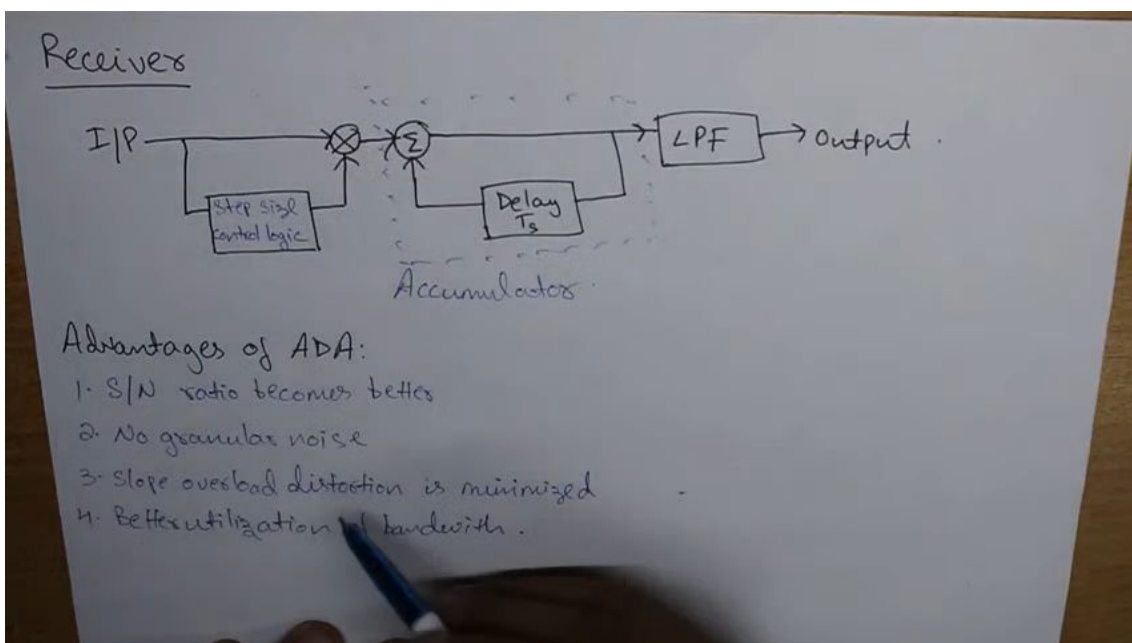 Receiver
I/P
Σ
LPF
Output.
Step size
control logic
Delay
Ts
Accumulator.
Advantages of ADA:
1. S/N ratio becomes better
2. No granular noise
3. Slope overload distortion is minimized
4. Better utilization bandwith.